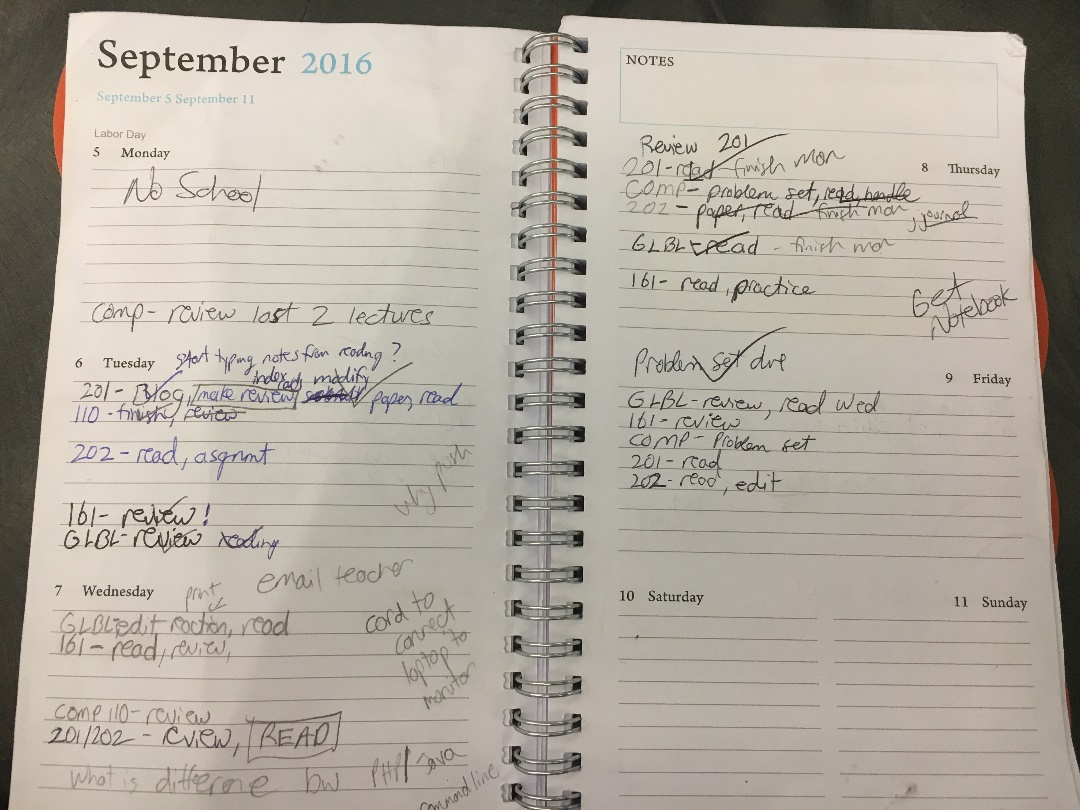 September 2016
September 5 September 11
Labor Day
5 Monday
No School
Comp- review last 2 lectures
6 Tuesday
start typing notes from reading?
index, read, modify
201- Blog, make review paper, read
110 - finish, review
202 - read, asgnmt
why push
161- review!
GLBL- review reading
7 Wednesday
email teacher
print
GLBL: edit reaction, read
161 - read, review,
cord to
connect
laptop to
monitor
Comp 110- review
201/202 - review, READ
What is difference bw PHP/Java
command line
NOTES
Review 201
8 Thursday
201- read - finish mon
COMP- problem set, read, handle
202 - paper, read - finish mon
journal
GLBL - read - finish mon
161- read, practice
Get
Notebook
Problem set due
9 Friday
GLBL- review, read wed
161- review
COMP- Problem set
201- read
202- read, edit
10 Saturday
11 Sunday